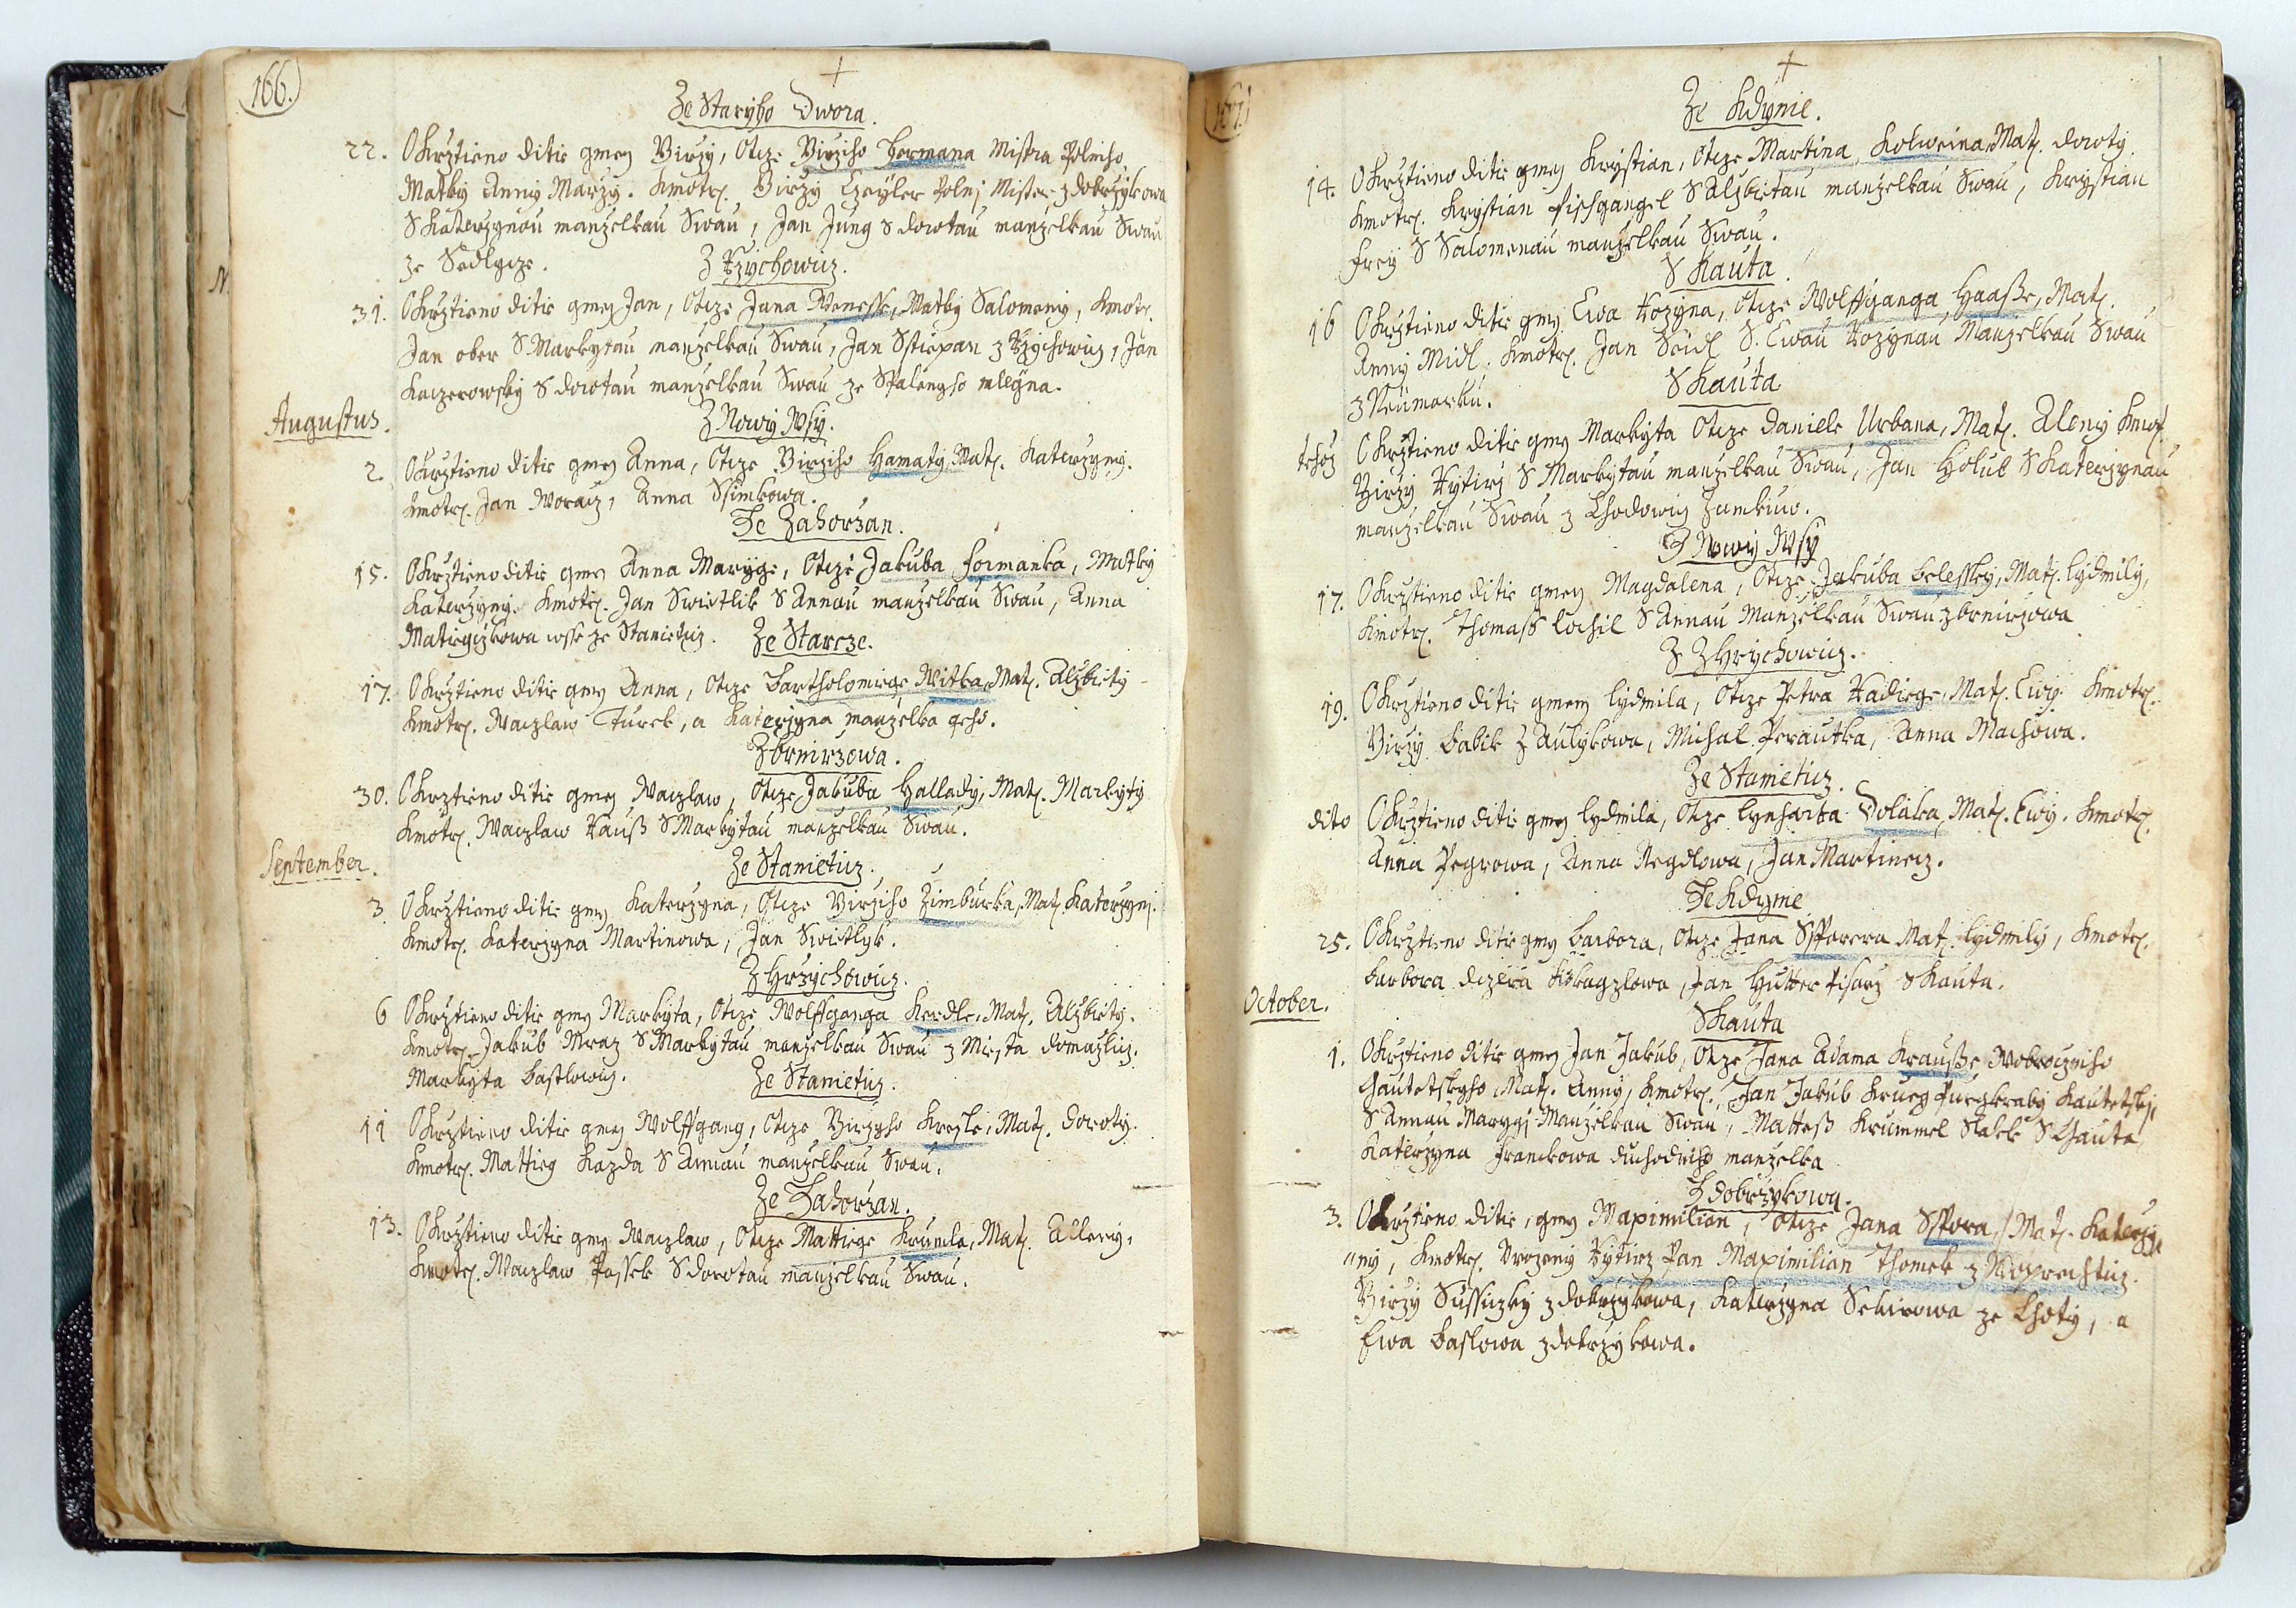 166.
Ze Staryho Dwora.
22. Okrztieno ditie gmeg Girzy, Otcze Girziho Hermana Mistra Polniho,
Matky Anniy Marzy. Kmotrz. Girzy Geyler Polnj Mister z dobrzykowa
S Katerzynau manzelkau Swau, Jan Jung S dorotau manzelkau Swau
ze Sedlycze.
Z Hrychowicz.
31. Okrztieno ditie gmeg Jan, Otcze Jana Wenesse, Matky Salomeniy, Kmotr.
Jan ober S Markytau manzelkau Swau, Jan Sstiepan z Hrychowicz, Jan
Kaczerowsky S dorotau manzelkau Swau ze Spalengho mlegna.
Augustus.
Z Nowiy Wsy.
2. Okrztieno ditie gmeg Anna, Otcze Girziho Hamaty, Matk. Katerzyny.
Kmotrz. Jan Woracz, Anna Ssimkowa.
Ze Zahorzan.
15. Okrztieno ditie gmeg Anna Maryge, Otcze Jakuba Formanka, Matky
Katerzyny. Kmotrz. Jan Swietlik S Annau manzelkau Swau, Anna
Matiegczkowa wsse ze Stanieticz.
Ze Starcze.
17. Okrztieno ditie gmeg Anna, Otcze Bartholomiege Witka, Matk. Alzbiety
Kmotrz. Waczlaw Turek, a Katerzyna manzelka geho.
Z brnirzowa.
30. Okrztieno ditie gmeg Waczlaw, Otcze Jakuba Hallady, Matk. Markyty
Kmotrz. Waczlaw Kauss S Markytau manzelkau Swau.
September.
Ze Stanieticz.
3. Okrztieno ditie gmeg Katerzyna, Otcze Girziho Zimburka, Matk. Katerzynj.
Kmotrz. Katerzyna Martinowa, Jan Swietlyk.
Z Hrzychowicz.
6 Okrztieno ditie gmeg Markyta, Otcze Wolffganga Kerdle, Matk. Alzbiety.
Kmotrz. Jakub Mraz S Markytau manzelkau Swau z Miesta domazlicz.
Markyta Bastlowicz.
Ze Stanieticz.
11 Okrztieno ditie gmeg Wolffgang, Otcze Girzyho Kresle, Matk. doroty.
Kmotrz. Mattieg Kazda S Annau manzelkau Swau.
Ze Zahorzan.
13. Okrztieno ditie gmeg Waczlaw, Otcze Mattiege Krumla, Matk. Alleniy,
Kmotrz. Waczlaw Possek S dorotau manzelkau Swau.
167.
Ze Kdynie.
14. Okrztieno ditie gmeg Krystian, Otcze Martina Kolweina, Matk. doroty.
Kmotrz. Krystian fischgangel S Alzbietau manzelkau Swau, Krystian
Frey S Salomenau manzelkau Swau.
S Kauta.
16 Okrztieno ditie gmeg Ewa Rozyna, Otcze Wolffganga Haasse, Matk.
Anny Midl. Kmotrz. Jan Seidl S. Ewau Rozynau Manzelkau Swau
z Neumarku.
S Kauta
tehoz Okrztieno ditie gmeg Markyta Otcze Daniele Urbana, Matk. Aleny Kmot.
Girzy Rytirz S Markytau manzelkau Swau, Jan Holub S Katerzynau
manzelkau Swau z Chodowy Zamkuw.
Z Nowiy Wsy
17. Okrztieno ditie gmeg Magdalena, Otcze Jakuba belessky, Matk. lydmily,
Kmotrz. Thomass lochil S Annau Manzelkau Swau z brnirzowa
Z ZHrychowicz.
19. Okrztieno ditie gmeg lydmila, Otcze Petra Radiege, Matk. Ewy. Kmotrz.
Girzy Babik Z Aulykowa, Michal Perautka, Anna Machowa.
Ze Stanieticz.
dito Okrztieno ditie gmeg lydmila, Otcze lynharta Dolaka, Matk. Ewy. Kmotrz.
Anna Pegrowa, Anna Regdlowa, Jan Martinecz.
Ze Kdynie
25. Okrztieno ditie gmeg barbora, Otcze Jana Spforera Matk. lydmily, Kmotrz.
barbora dczera Kragzlowa, Jan Hutter Pisarz S Kauta.
October.
S Kauta
1. Okrztieno ditie gmeg Jan Jakub, Otcze Jana Adama Krausse, Wobrocznjho
Gautetskyho, Matk. Anny, Kmotrz. Jan Jakub Krueg Purgkraby Kautetsky,
S Annau Marygj Manzelkau Swau, Mattess Krummel Sladek S Gauta
Katerzyna Franckowa duchodniho manzelka
Z dobrzykowa.
3. Okrztieno ditie, gmeg Maximilian, Otcze Jana Sspora, Matk. Katerzy
"ny, Kmotrz. Urozeniy Rytirz Pan Maximilian Thomek z Woprechticz.
Girzy Sussiczky z dobrzykowa, Katerzyna Sekirowa ze Lhoty, a
Ewa Baslowa z dobrzykowa.